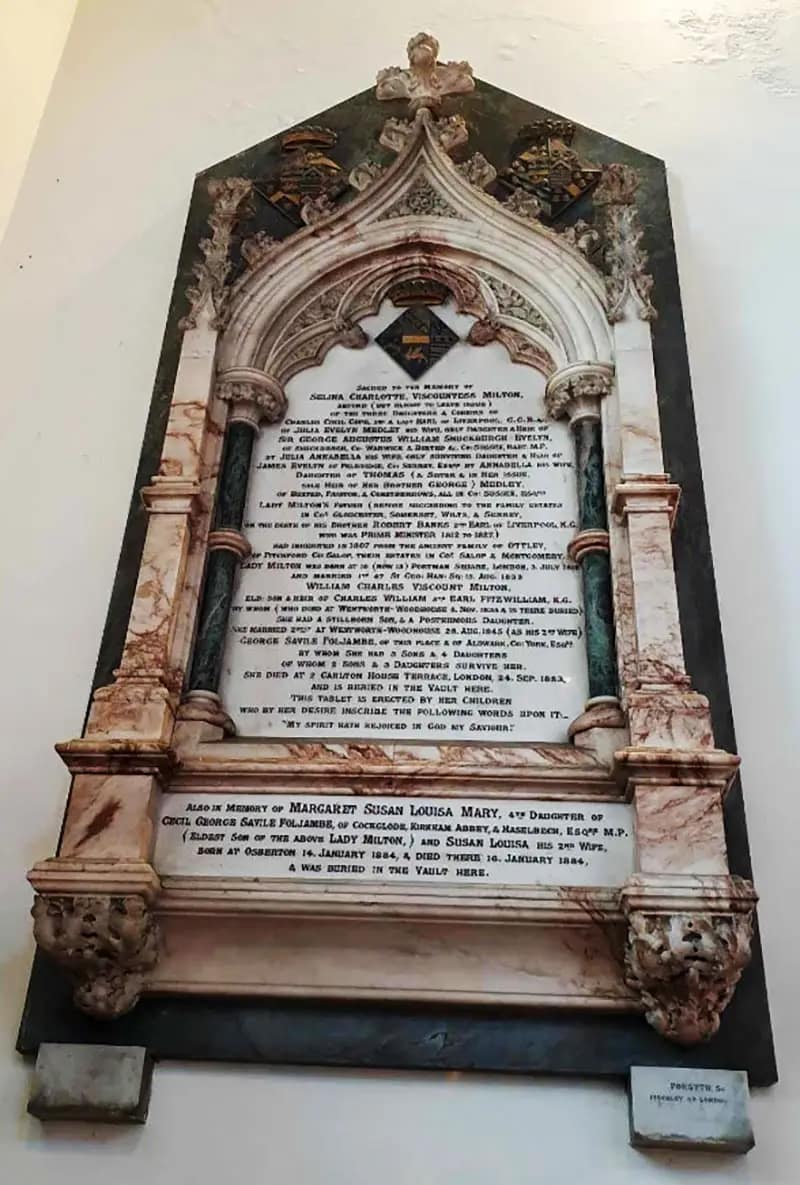 SACRED TO THE MEMORY OF
SELINA CHARLOTTE, VISCOUNTESS MILTON,
SECOND (BUT ELDEST TO LEAVE ISSUE)
OF THE THREE DAUGHTERS & COHEIRS OF
CHARLES CECIL COPE, 3RD & LAST EARL OF LIVERPOOL, G.C.B. &
OF JULIA EVELYN MEDLEY HIS WIFE, ONLY DAUGHTER & HEIR OF
SIR GEORGE AUGUSTUS WILLIAM SHUCKBURGH EVELYN,
OF SHUCKBURGH, CO: WARWICK & BUXTED &c. CO: SUSSEX, BART. M.P.
BY JULIA ANNABELLA HIS WIFE, ONLY SURVIVING DAUGHTER & HEIR OF
JAMES EVELYN OF FELBRIDGE, CO: SURREY, ESQRE BY ANNABELLA HIS WIFE,
DAUGHTER OF THOMAS (& SISTER & IN HER ISSUE,
SOLE HEIR OF HER BROTHER GEORGE) MEDLEY,
OF BUXTED, FRISTON, & CONEYBOROWS, ALL IN CO: SUSSEX, ESQRES
LADY MILTON'S FATHER (BEFORE SUCCEEDING TO THE FAMILY ESTATES
IN COS GLOUCESTER, SOMERSET, WILTS, & SURREY,
ON THE DEATH OF HIS BROTHER ROBERT BANKS 2ND EARL OF LIVERPOOL, K.G.
WHO WAS PRIME MINISTER 1812 TO 1827.)
HAD INHERITED IN 1807 FROM THE ANCIENT FAMILY OF OTTLEY,
OF PITCHFORD CO: SALOP, THEIR ESTATES IN COS SALOP & MONTGOMERY.
LADY MILTON WAS BORN AT 16 (NOW 18) PORTMAN SQUARE, LONDON, 3. JULY
AND MARRIED 1ST AT ST GEO: HAN: SQ: 15. AUG. 1833
WILLIAM CHARLES VISCOUNT MILTON,
ELD: SON & HEIR OF CHARLES WILLIAM 5TH EARL FITZWILLIAM, K.G.
BY WHOM (WHO DIED AT WENTWORTH-WOODHOUSE 8. NOV. 1835 & IS THERE BURIED)
SHE HAD A STILLBORN SON, & A POSTHUMOUS DAUGHTER.
SHE MARRIED 2NDLY AT WENTWORTH-WOODHOUSE 28. AUG. 1845 (AS HIS 2ND WIFE)
GEORGE SAVILE FOLJAMBE, OF THIS PLACE & OF ALDWARK, CO: YORK, ESQRE
BY WHOM SHE HAD 3 SONS & 4 DAUGHTERS
OF WHOM 2 SONS & 3 DAUGHTERS SURVIVE HER.
SHE DIED AT 2 CARLTON HOUSE TERRACE, LONDON, 24. SEP. 1883,
AND IS BURIED IN THE VAULT HERE.
THIS TABLET IS ERECTED BY HER CHILDREN
WHO BY HER DESIRE INSCRIBE THE FOLLOWING WORDS UPON IT:-
"MY SPIRIT HATH REJOICED IN GOD MY SAVIOUR."
ALSO IN MEMORY OF MARGARET SUSAN LOUISA MARY, 4TH DAUGHTER OF
CECIL GEORGE SAVILE FOLJAMBE, OF COCKGLODE, KIRKHAM ABBEY, & HASELBECH, ESQRE M.P.
(ELDEST SON OF THE ABOVE LADY MILTON,) AND SUSAN LOUISA HIS 2ND WIFE,
BORN AT OSBERTON 14. JANUARY 1884, & DIED THERE 16. JANUARY 1884,
& WAS BURIED IN THE VAULT HERE.
FORSYTH Sc.
FINCHLEY RD LONDON